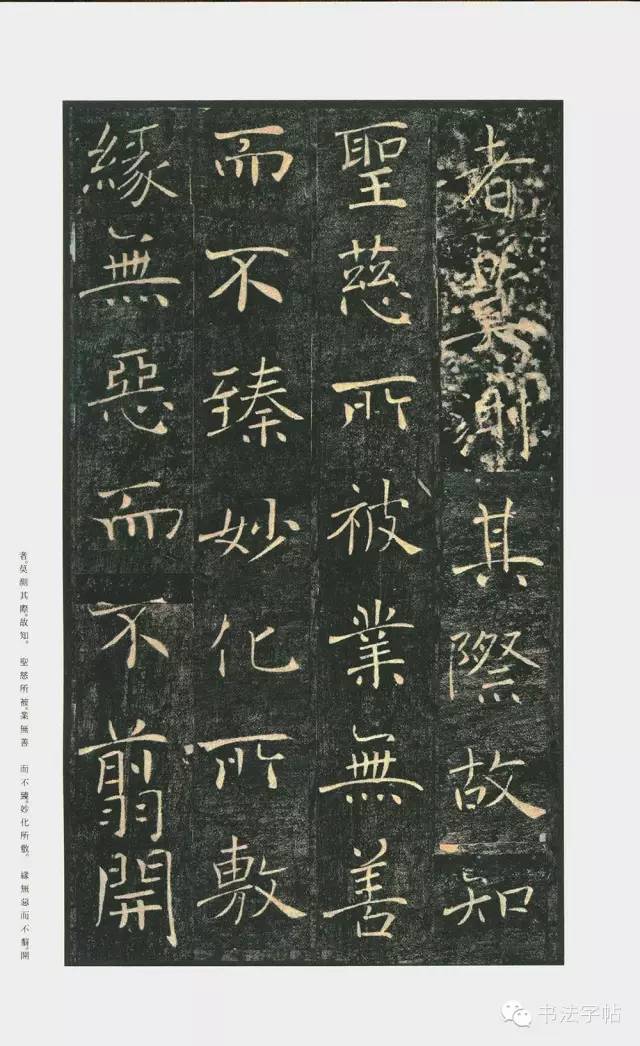 者莫測其際故知
聖慈所被業無善
而不臻妙化所敷
緣無惡而不翦開
者。莫測其際。故知。　聖慈所被。業無善　而不臻。妙化所敷。　緣無惡而不翦。開
书法字帖